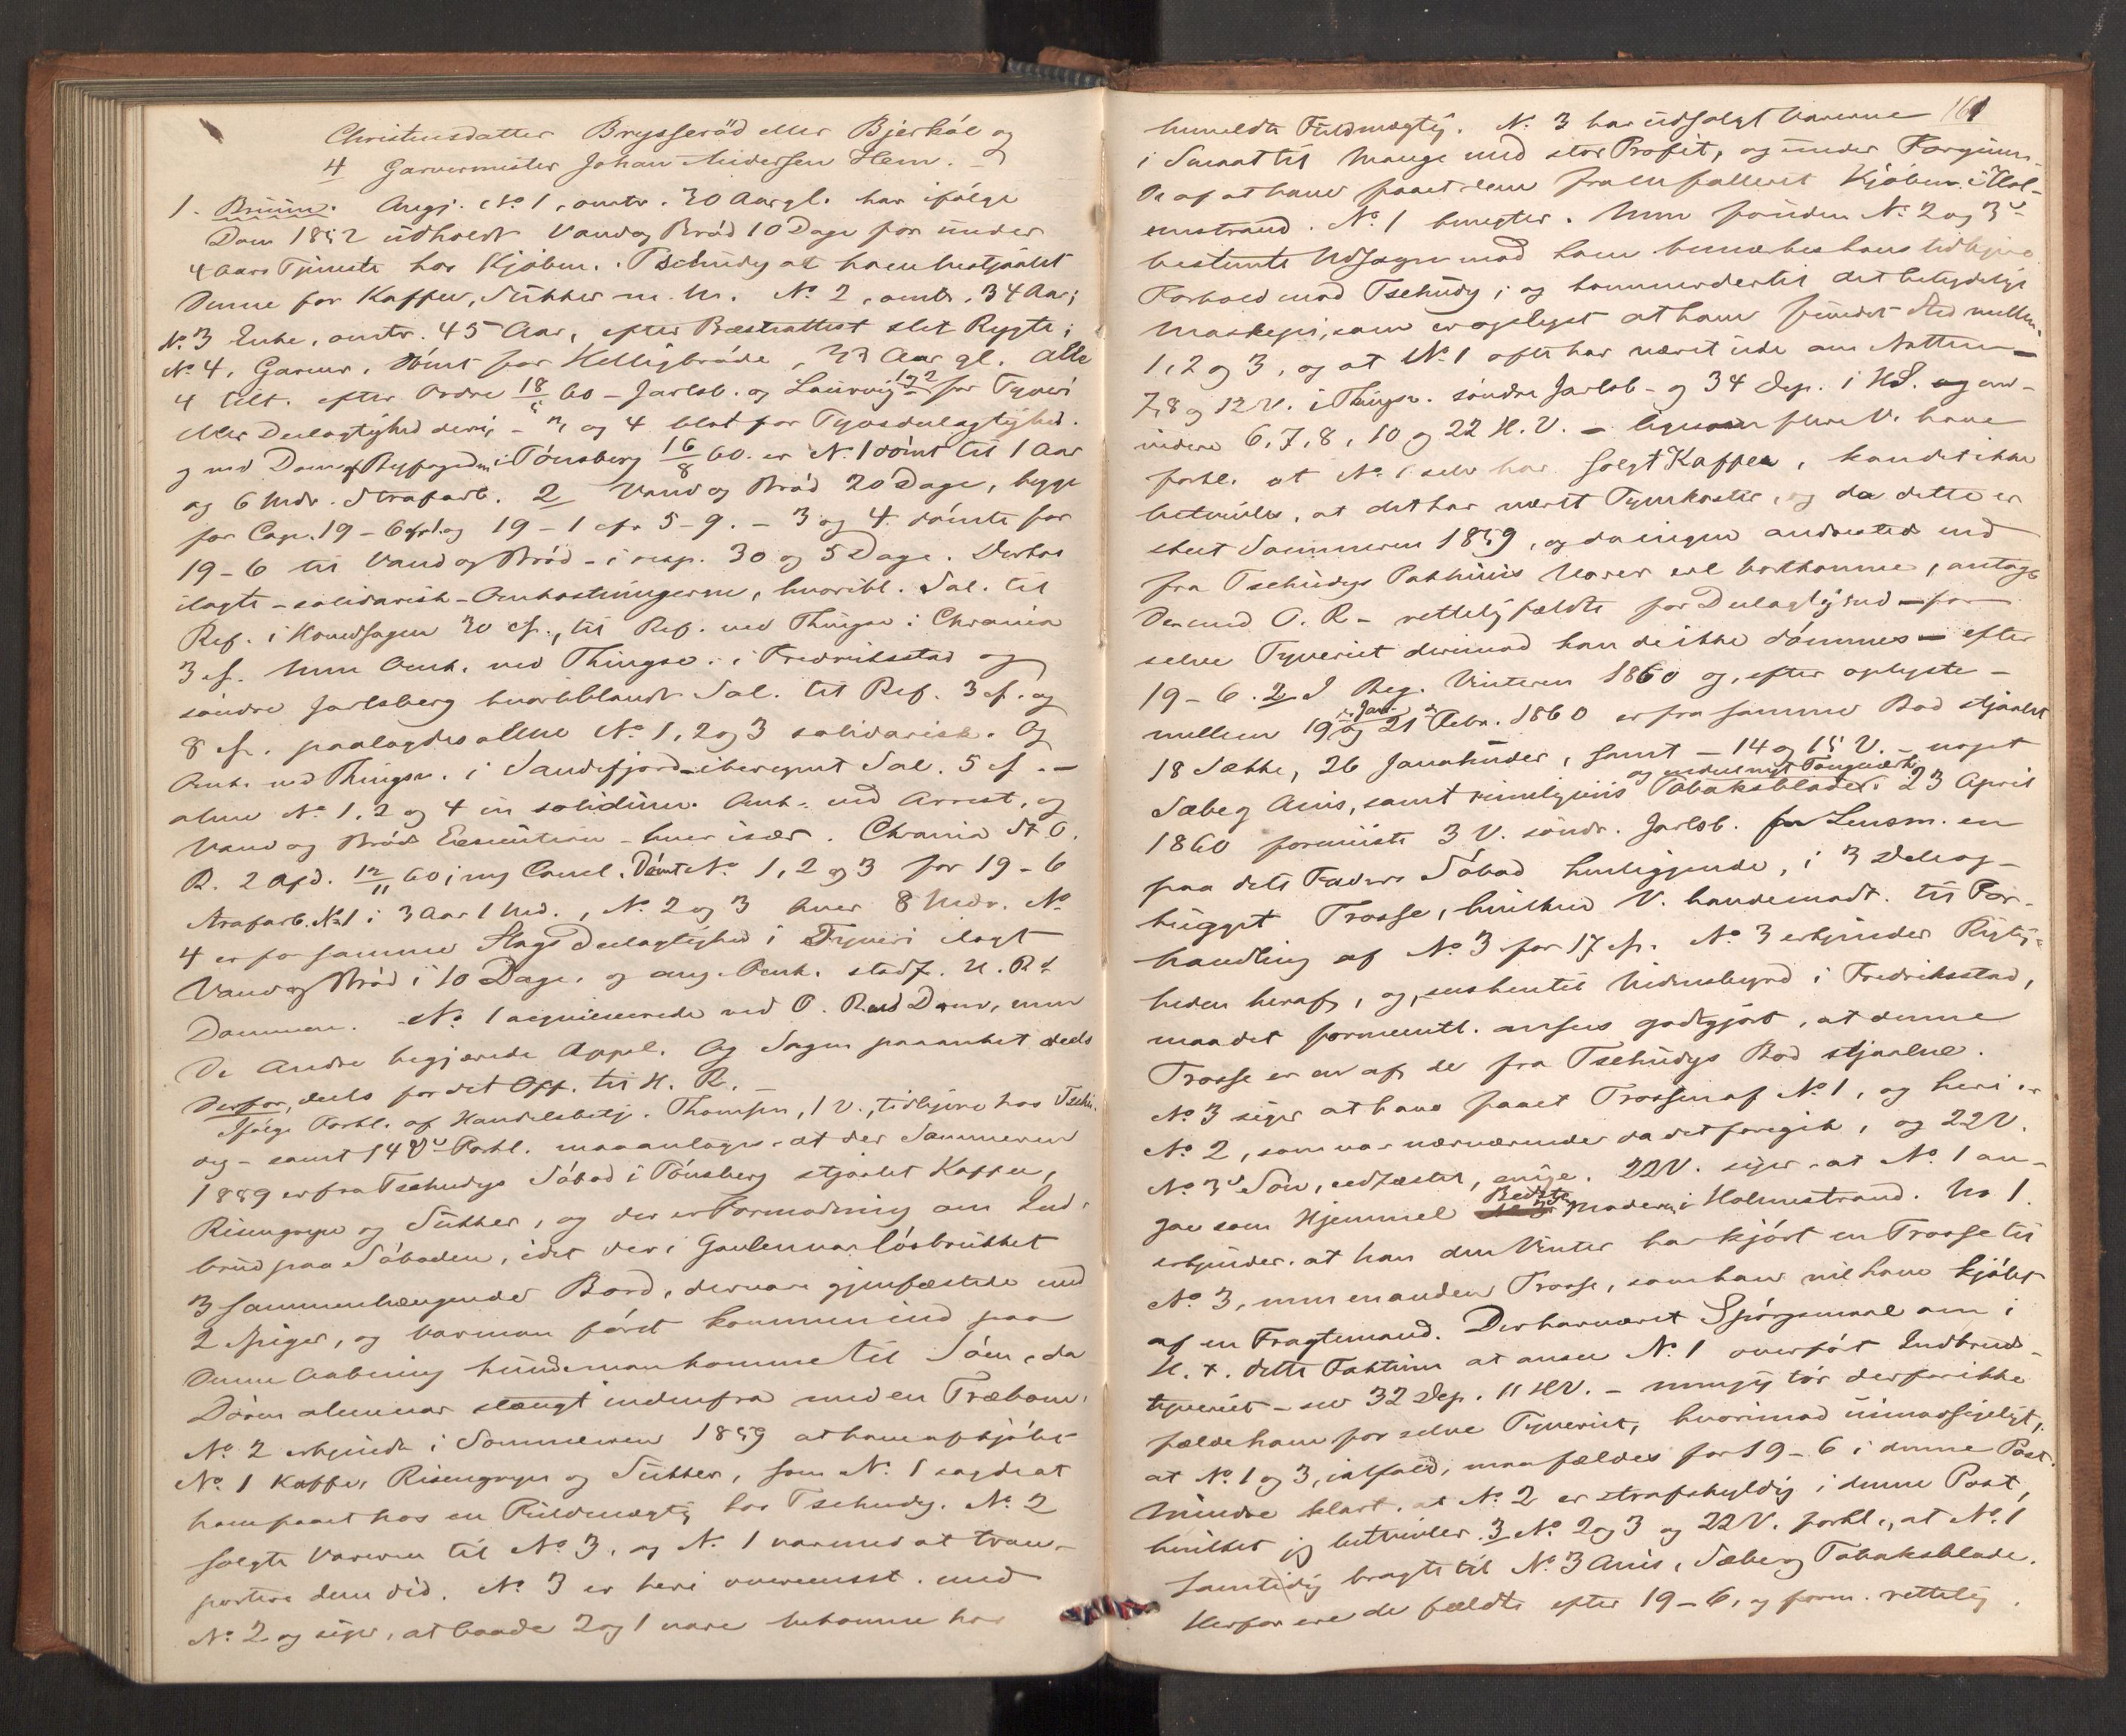 Christensdatter Brysseröd eller Bjerköe og
4 Garvermester Johan Andersen Hem.
1. Bruun. Angj. No 1, omtr. 30 Aar gl. har ifölge
Dom 1852 udholdt Vand og Bröd 10 Dage for under
4 Aars Tjeneste hos Kjöbm. Tschudy at have bestjaalet
denne for Kaffee, Sukker m. m. No 2, omtr. 34 Aar;
No 3 Enke, omtr. 45 Aar, efter Præsteattest slet Rygte;
No 4, Garver, dömt for Helligbröde, 33 Aar gl. Alle
4 tilt. efter Ordre 18/5 60 - Jarlsb. og Laurvig for Tyveri
eller Deelagtighed deri, - og 4 blot for Tyvsdeelagtighed.
og ved Dom af Byfogden i Tönsberg 16/8 60. er No 1 dömt til 1 Aar
og 6 Mdr. Strafarb. 2 Vand og Bröd 20 Dage, begge
for Cap. 19 - 6 og 19 - 1 cfr 5 - 9. - 3 og 4 dömte for
19 - 6 til Vand og Bröd - i resp. 30 og 5 Dage. Derhos
ilagte - solidarisk - Omkostningerne, hvoribl. Sal. til
Ref. i Hovedsagen 20 Sp., til Ref. ved Thingsv. i Chrania
3 Sp. Men Omk. ved Thingsv. i Fredriksstad og
söndre Jarlsberg hvoriblandt Sal. til Ref. 3 Sp. og
8 Sp. paalagdes alene No 1, 2 og 3 solidarisk. Og
Omk. ved Thingsv. i Sandefjord - iberegnet Sal. 5 Sp. -
alene No 1, 2 og 4 in solidum. Omk. ved Arrest, og
Vand og Bröds Execution - hver især. Chrania St. O.
R. 2 Afd. 12/11 60; Dömt No 1, 2 og 3 for 19 - 6
Strafarb. No 1 i 3 Aar 1 Md., No 2 og 3 hver 8 Mdr. No
4 er for samme Slags Deelagtighed i Tyveri ilagt
Vand og Bröd i 10 Dage. og ang. Omk. stadf. U. Rs
Dommen. - No 1 acquiescerede ved O. Rens Dom, men
De Andre begjærede Appel. Og Sagen paaanket deels
derfor, deels for det Off. til H. R. -
Ifölge Forkl. af Handelsbetj. Thomsen, 1 V., tidligere hos Tschu-
dy - samt 14 Vs Forkl. maa antages at der Sommeren
1859 er fra Tschudys Söbod i Tönsberg stjaalet Kaffee,
Risengryn og Sukker, og der er Formodning om Ind-
brud paa Söboden, idet der i Gavlen var lösbrukket
3 sammenhængende Bord, der vare gjenfæstede med
2 Spiger, og var man först kommen ind paa
denne Aabning kunde man komme til Söen, da
Dören alene var stængt indenfra med en Træbom.
No 2 erkjendte i Sommeren 1859 at have afkjöbt
No 1 Kaffe, Risengryn og Sukker, som No. 1 sagde at
have faaet hos en Fuldmægtig hos Tschudy. No 2
solgte Varerne til No 3, og No. 1 var med at trans-
portere dem did. No 3 er heri overeensst. med
No 2 og siger, at baade 2 og 1 vare bekomne hos
161
bemeldte Fuldmægtig. No 3 har udsolgt Varerne
i Smaat til Mange med stor Profit, og under Foregiven-
de af at have faaet dem fra en falleret Kjöbm. i Hol-
mestrand. No 1 benegter. Men foruden No 2 og 3s
bestemte Udsagn mod ham bemærkes hans tidligere
Forhold mod Tschudy; og kommer dertil det betydelige
Maskepi, som er oplyst at have fundet Sted mellem
1, 2 og 3, og at No 1 ofte har været ude om Natten -
7, 8 og 12 V. i Thingsv. söndre Jarlsb. - og 34 Dep. i HS. og end-
videre 6, 7, 8, 10 og 22 H. V. - ligesom flere V. have
forkl. at No 1 selv har solgt Kaffee, kan det ikke
betvivles, at det har været Tyvekoster, og da dette er
skeet Sommeren 1859, og da ingen andensteds end
fra Tschudys Pakhuus Varer ere bortkomne, antages
De med O. R. - rettelig fældte for Deelagtighed - for
selve Tyveriet derimod kan de ikke dömmes - efter
19 - 6. 2 I Beg. Vinteren 1860 og, efter oplyste -
mellem 19 Jan. og 21 Febr. 1860 er fra samme Bod stjaalet
18 Sække, 26 Januhuder, samt - 14 og 15 V. - noget
Sæbe og Anis, samt rimeligviis og endeel nyt Tougværk Tobaksblade. 23 April
1860 foreviiste 3 V. söndr. Jarlsb. for Lensm. en
paa dets Faders Söbod henliggende, i 3 Dele op-
hugget Trosse, hvilken V. havde modt. til For-
handling af No 3 for 17 Sp. No 3 erkjender Rigtig-
heden heraf, og, enskent til Vidnesbyrd i Fredriksstad,
maa det formeentl. ansees godtgjort, at denne
Trosse er en af de fra Tschudys Bod stjaalne.
No 3 siger at have faaet Trossen af No 1, og heri er
No 2, som var nærværende da det foregik, og 22 V.
No 3s Sön, edfæstet, enige. 22 V. siger at No 1 an-
gav som Hjemmel Bedste Moderen i Holmestrand. No 1
erkjender at han den Vinter har kjört en Trosse til
No 3, men en anden Trosse, som han vil have kjöbt
af en Fragtemand. Der har været Spörgsmaal om i
H. t. dette Faktum at ansee No 1 overfört Indbruds-
tyveriet - see 32 Dep. 11 HV. - men jeg tör derfor ikke
fælde ham for selve Tyveriet, hvorimod uimodsigeligt,
at No 1 og 3, ialfald, maa fældes for 19 - 6 i denne Post.
Mindre klart, at No 2 er strafskyldig i denne Post,
hvilket jeg betvivler. 3 No 2 og 3 og 22 V. forkl., at No. 1
samtidig bragte til No 3 Anis, Sæbe og Tobaksblade.
Herfor ere de fældte efter 19 - 6, og form. rettelig.